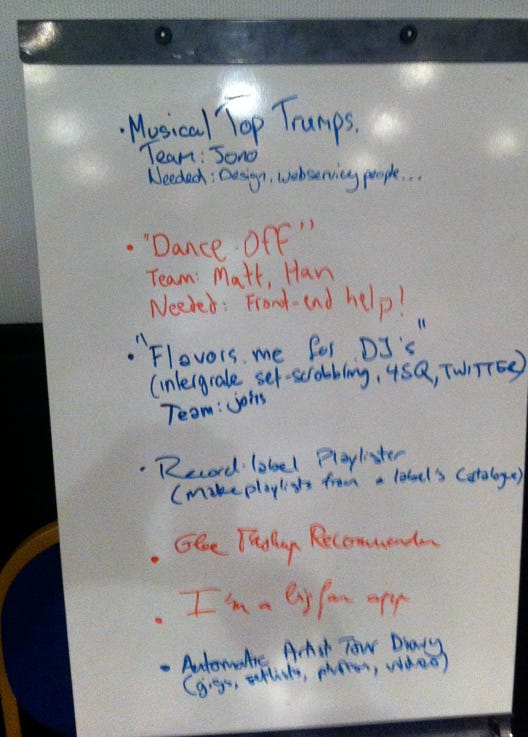 • Musical Top Trumps.
Team: Jono
Needed: Design, webservicey people...
• "Dance Off"
Team: Matt, Han
Needed: Front-end help!
• "Flavors.me for DJ's"
(intergrate set-scrobbling, 4SQ, TWITTER)
Team:
• Record-label Playlister
(make playlists from a label's catalogue)
• Glee Mashup Recommender
• I'm a big fan app
• Automatic Artist Tour Diary
(gigs, setlists, photos, video)